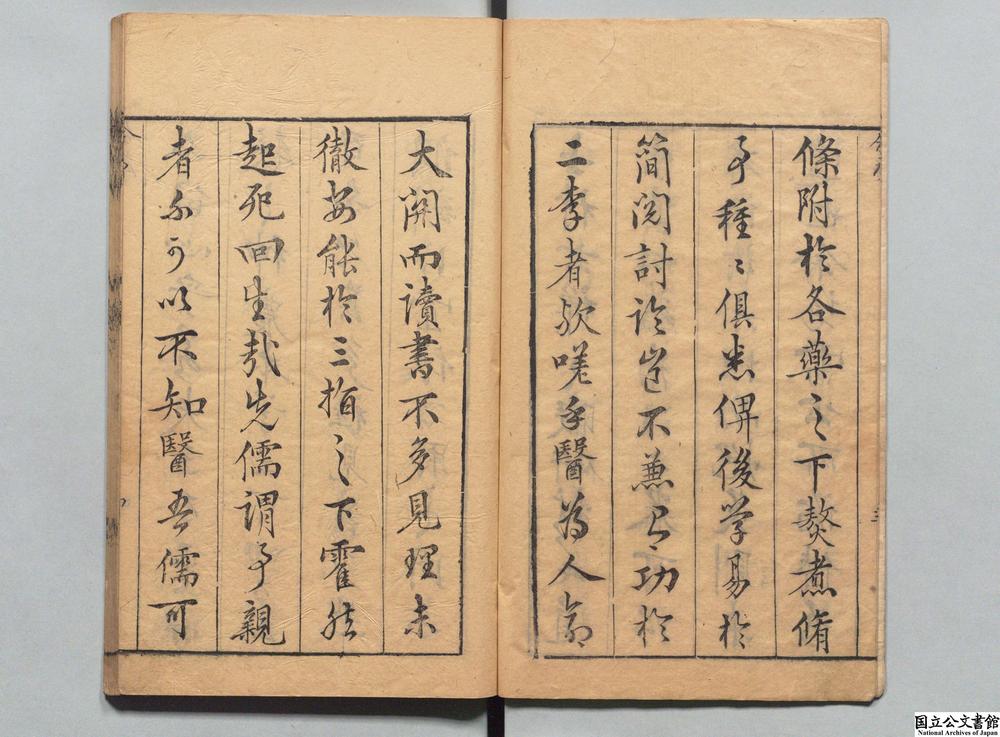 條附於各藥之下熬煮脩
事種々俱悉俾後学易於
簡閱討論豈不兼有功於
二李者歟嗟乎醫為人命
大關而讀書不多見理未
徹安能於三指之下霍然
起死回生哉先儒謂事親
者不可以不知醫吾儒可
国立公文書館
National Archives of Japan